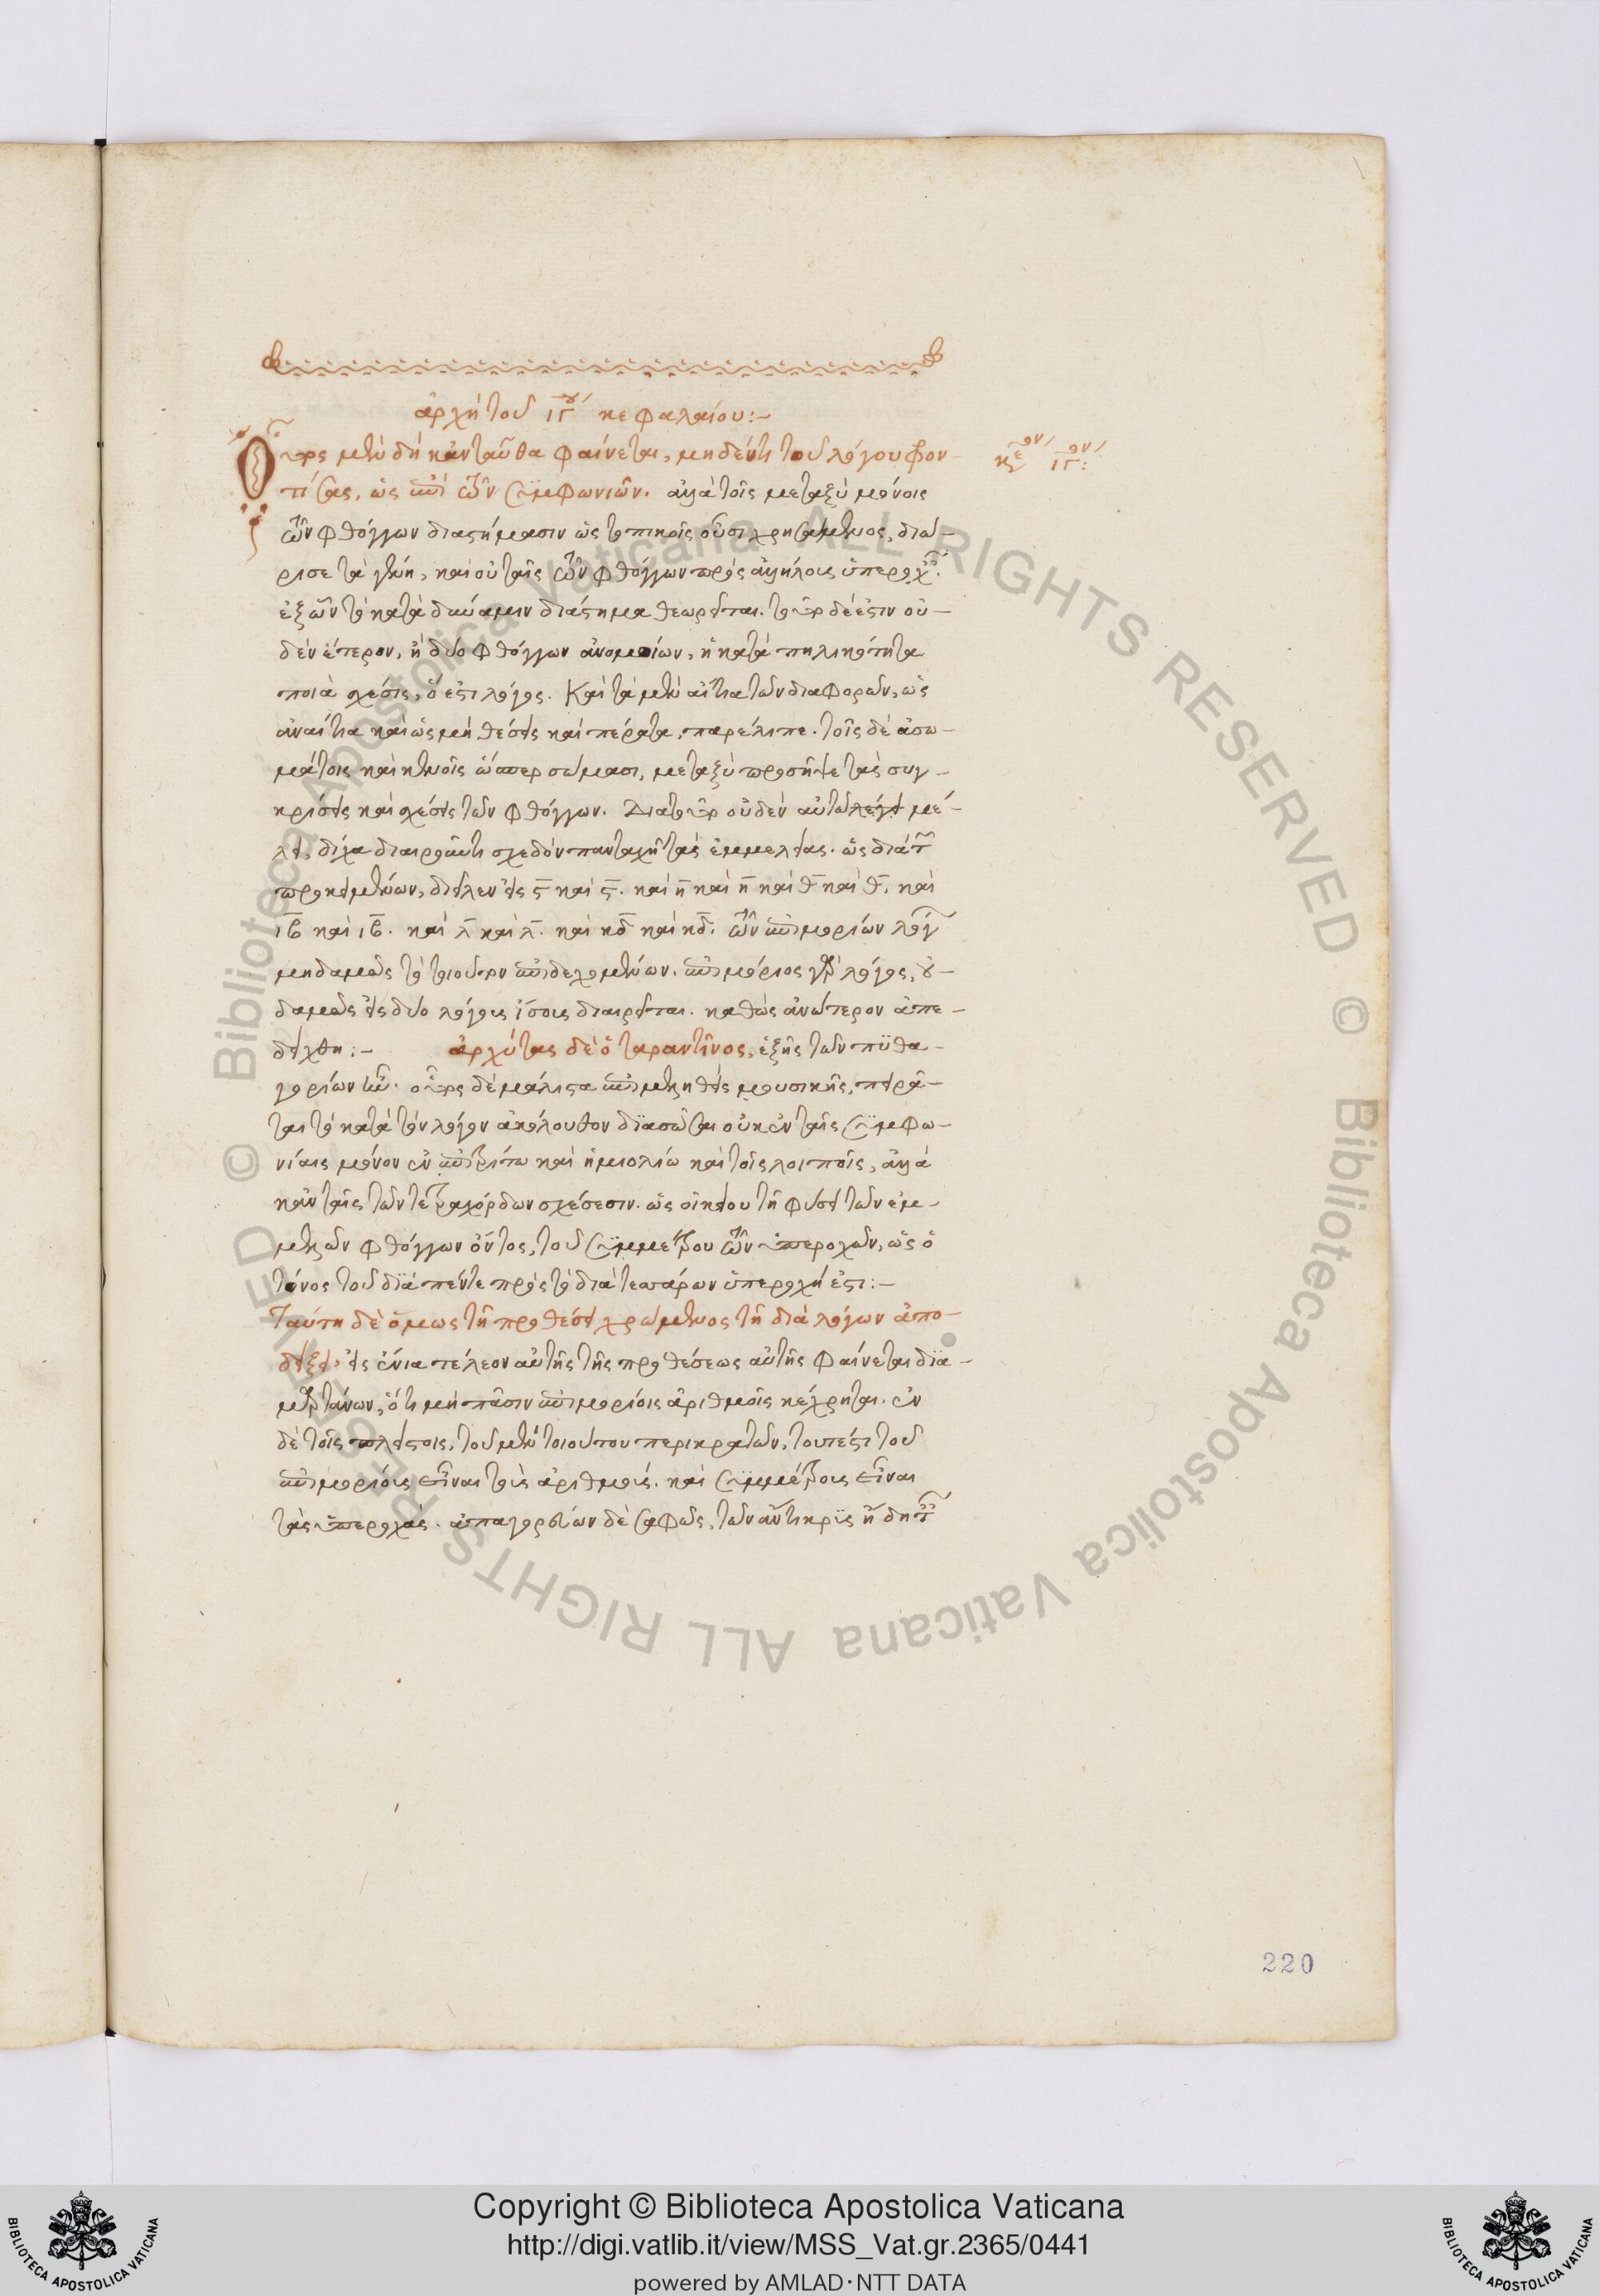 ἀρχὴ τοῦ ιγ´ου κεφαλαίου:-
Οὗτος μὲν δὴ κἀνταῦθα φαίνεται, μηδέν τι τοῦ λόγου φρον-
κε´ον ιγ´ον:
τίσας, ὡς ἐπὶ τῶν συμφωνιῶν. ἀλλὰ τοῖς μεταξὺ μόνοις
τῶν φθόγγων διαστήμασιν ὡς τοπικοῖς οὖσι χρησάμενος, διώ-
ρισε τὰ γένη, καὶ οὐ ταῖς τῶν φθόγγων πρὸς ἀλλήλους ὑπεροχαῖς.
ἐξ ὧν τὸ κατὰ δύναμιν διάστημα θεωρεῖται. τοῦτο δέ ἐστιν οὐ-
δὲν ἕτερον, ἢ δύο φθόγγων ἀνομοίων, ἡ κατὰ πηλικότητα
ποιὰ σχέσις, ὅ ἐστι λόγος. Καὶ τὰ μὲν αἴτια τῶν διαφορῶν, ὡς
ἀναίτια καὶ ὡς μὴ θέσεις καὶ πέρατα, παρέλιπε. τοῖς δὲ ἀσω-
μάτοις καὶ κενοῖς ὥσπερ σώμασι, μεταξὺ προσῆπτε τὰς συγ-
κρίσεις καὶ σχέσεις τῶν φθόγγων. Διατοῦτο οὐδὲν αὐτῶ λέγει μέ-
λει, δίχα διαιροῦντι σχεδὸν πανταχῆ τὰς ἐμμελείας. ὡς διὰ τῶν
προκειμένων, διεῖλεν εἰς ϛ καὶ ϛ. καὶ η καὶ η καὶ θ καὶ θ. καὶ
ιβ καὶ ιβ. καὶ λ καὶ λ. καὶ κδ καὶ κδ. τῶν ἐπιμορίων λόγων
μηδαμῶς τὸ τοιοῦτον ἐπιδεχομένων. ἐπιμόριος γὰρ λόγος, οὐ-
δαμῶς εἰς δύο λόγους ἴσους διαιρεῖται. καθὼς ἀνώτερον ἀπε-
δείχθη:- ἀρχύτας δὲ ὁ ταραντῖνος, ἑξῆς τῶν πϋθα-
γορίων ἦν. οὗτος δὲ μάλιστα ἐπιμεληθεὶς μουσικῆς, πειρᾶ-
ται τὸ κατὰ τὸν λόγον ἀκόλουθον διασῶσαι οὐκ ἐν ταῖς συμφω-
νίαις μόνον ἐν ἐπιτρίτω καὶ ἡμιολίω καὶ τοῖς λοιποῖς, ἀλλὰ
κἀν ταῖς τῶν τετραχόρδων σχέσεσιν. ὡς οἰκείου τῆ φύσει τῶν ἐμ-
μελῶν φθόγγων ὄντος, τοῦ συμμέτρου τῶν ὑπεροχῶν, ὡς ὁ
τόνος τοῦ διὰ πέντε πρὸς τὸ διὰ τεσσάρων ὑπεροχή ἐστι:-
Ταύτη δὲ ὅμως τῆ προθέσει χρώμενος τῆ διὰ λόγων ἀπο-
δείξει. εἰς ἔνια τέλεον αὐτῆς τῆς προθέσεως αὐτῆς φαίνεται δϊα-
μαρτάνων, ὅτι μὴ πᾶσιν ἐπιμορίοις ἀριθμοῖς κέχρηται. ἐν
δὲ τοῖς πλείστοις, τοῦ μὲν τοιούτου περικρατῶν, τουτέστι τοῦ
ἐπιμορίους εἶναι τοὺς ἀριθμούς. καὶ συμμέτρους εἶναι
τὰς ὑπεροχάς. ἀπαγορεύων δὲ σαφῶς, τῶν ἄντικρϋς ἤδη τοῖς
220
Copyright © Biblioteca Apostolica Vaticana
http://digi.vatlib.it/view/MSS_Vat.gr.2365/0441
powered by AMLAD·NTT DATA
BIBLIOTECA APOSTOLICA VATICANA
BIBLIOTECA APOSTOLICA VATICANA
© Biblioteca Apostolica Vaticana ALL RIGHTS RESERVED © Biblioteca Apostolica Vaticana ALL RIGHTS RESERVED